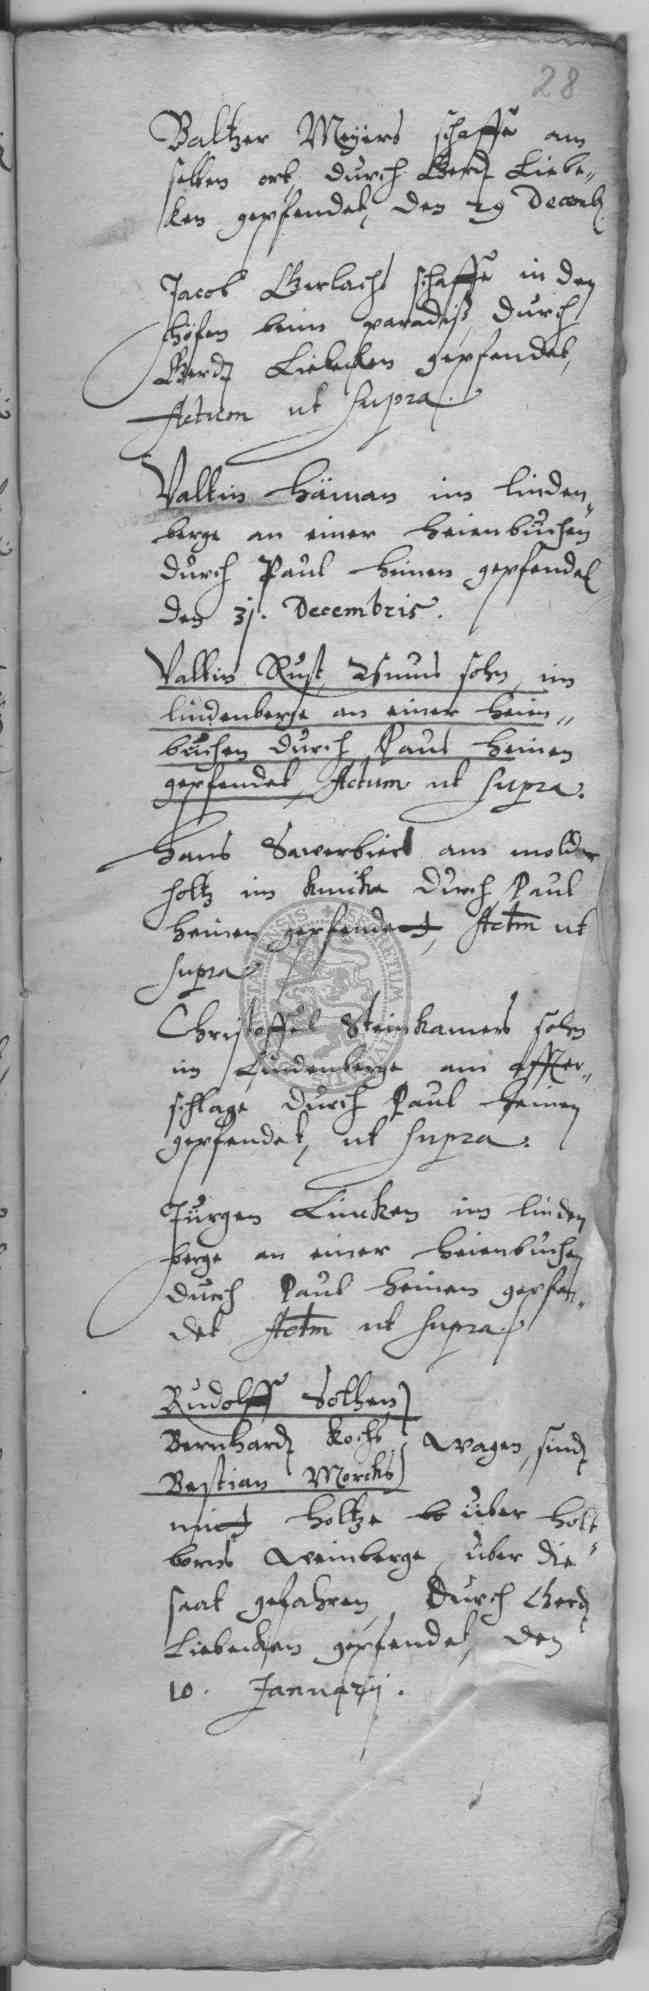 28
Baltzer Meyers schaffe am
selben ort, durch Gerd Liebe„
ken gepfendet, den 29 Decemb
Jacob Gerlachs schaffe in den
höfen beim paradiß, durch
Gerd Liebecken gepfendet,
Actum ut supra.
Valtin Häman im linden„
berge an einer heienbuchen
durch Paul heinen gepfendet
den 31. Decembris.
Valtin Rust, Asmus sohn, im
lindenberge an einer heien„
buchen durch Paul heinen
gepfendet, Actum ut supra.
Hans Sawerbiers am molder
holtz im knicke durch Paul
heinen gepfendet, Actm ut
supra
Christoffel Steinkamers sohn
im Lindenberge am affter„
schlage durch Paul heinen
gepfendet, ut supra.
Jurgen Lincken im linden
berge an einer heienbuchen
durch Paul heinen gepfen„
det Actm ut supra
Rudolff Sothen
Bernhard Kochs wagen, sind
Bastian Morcks
mit holtze uber holt„
borns weinberge uber die
saat gefahren, Durch Gerd
Liebecken gepfendet, den
10. Januarij.